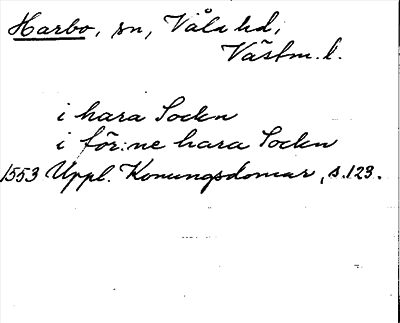 Harbo, sn, Våla hd,
Västm. l.
i hara Sockn
i för:ne hara Sockn
1553 Uppl. Konungsdomar, s. 123.